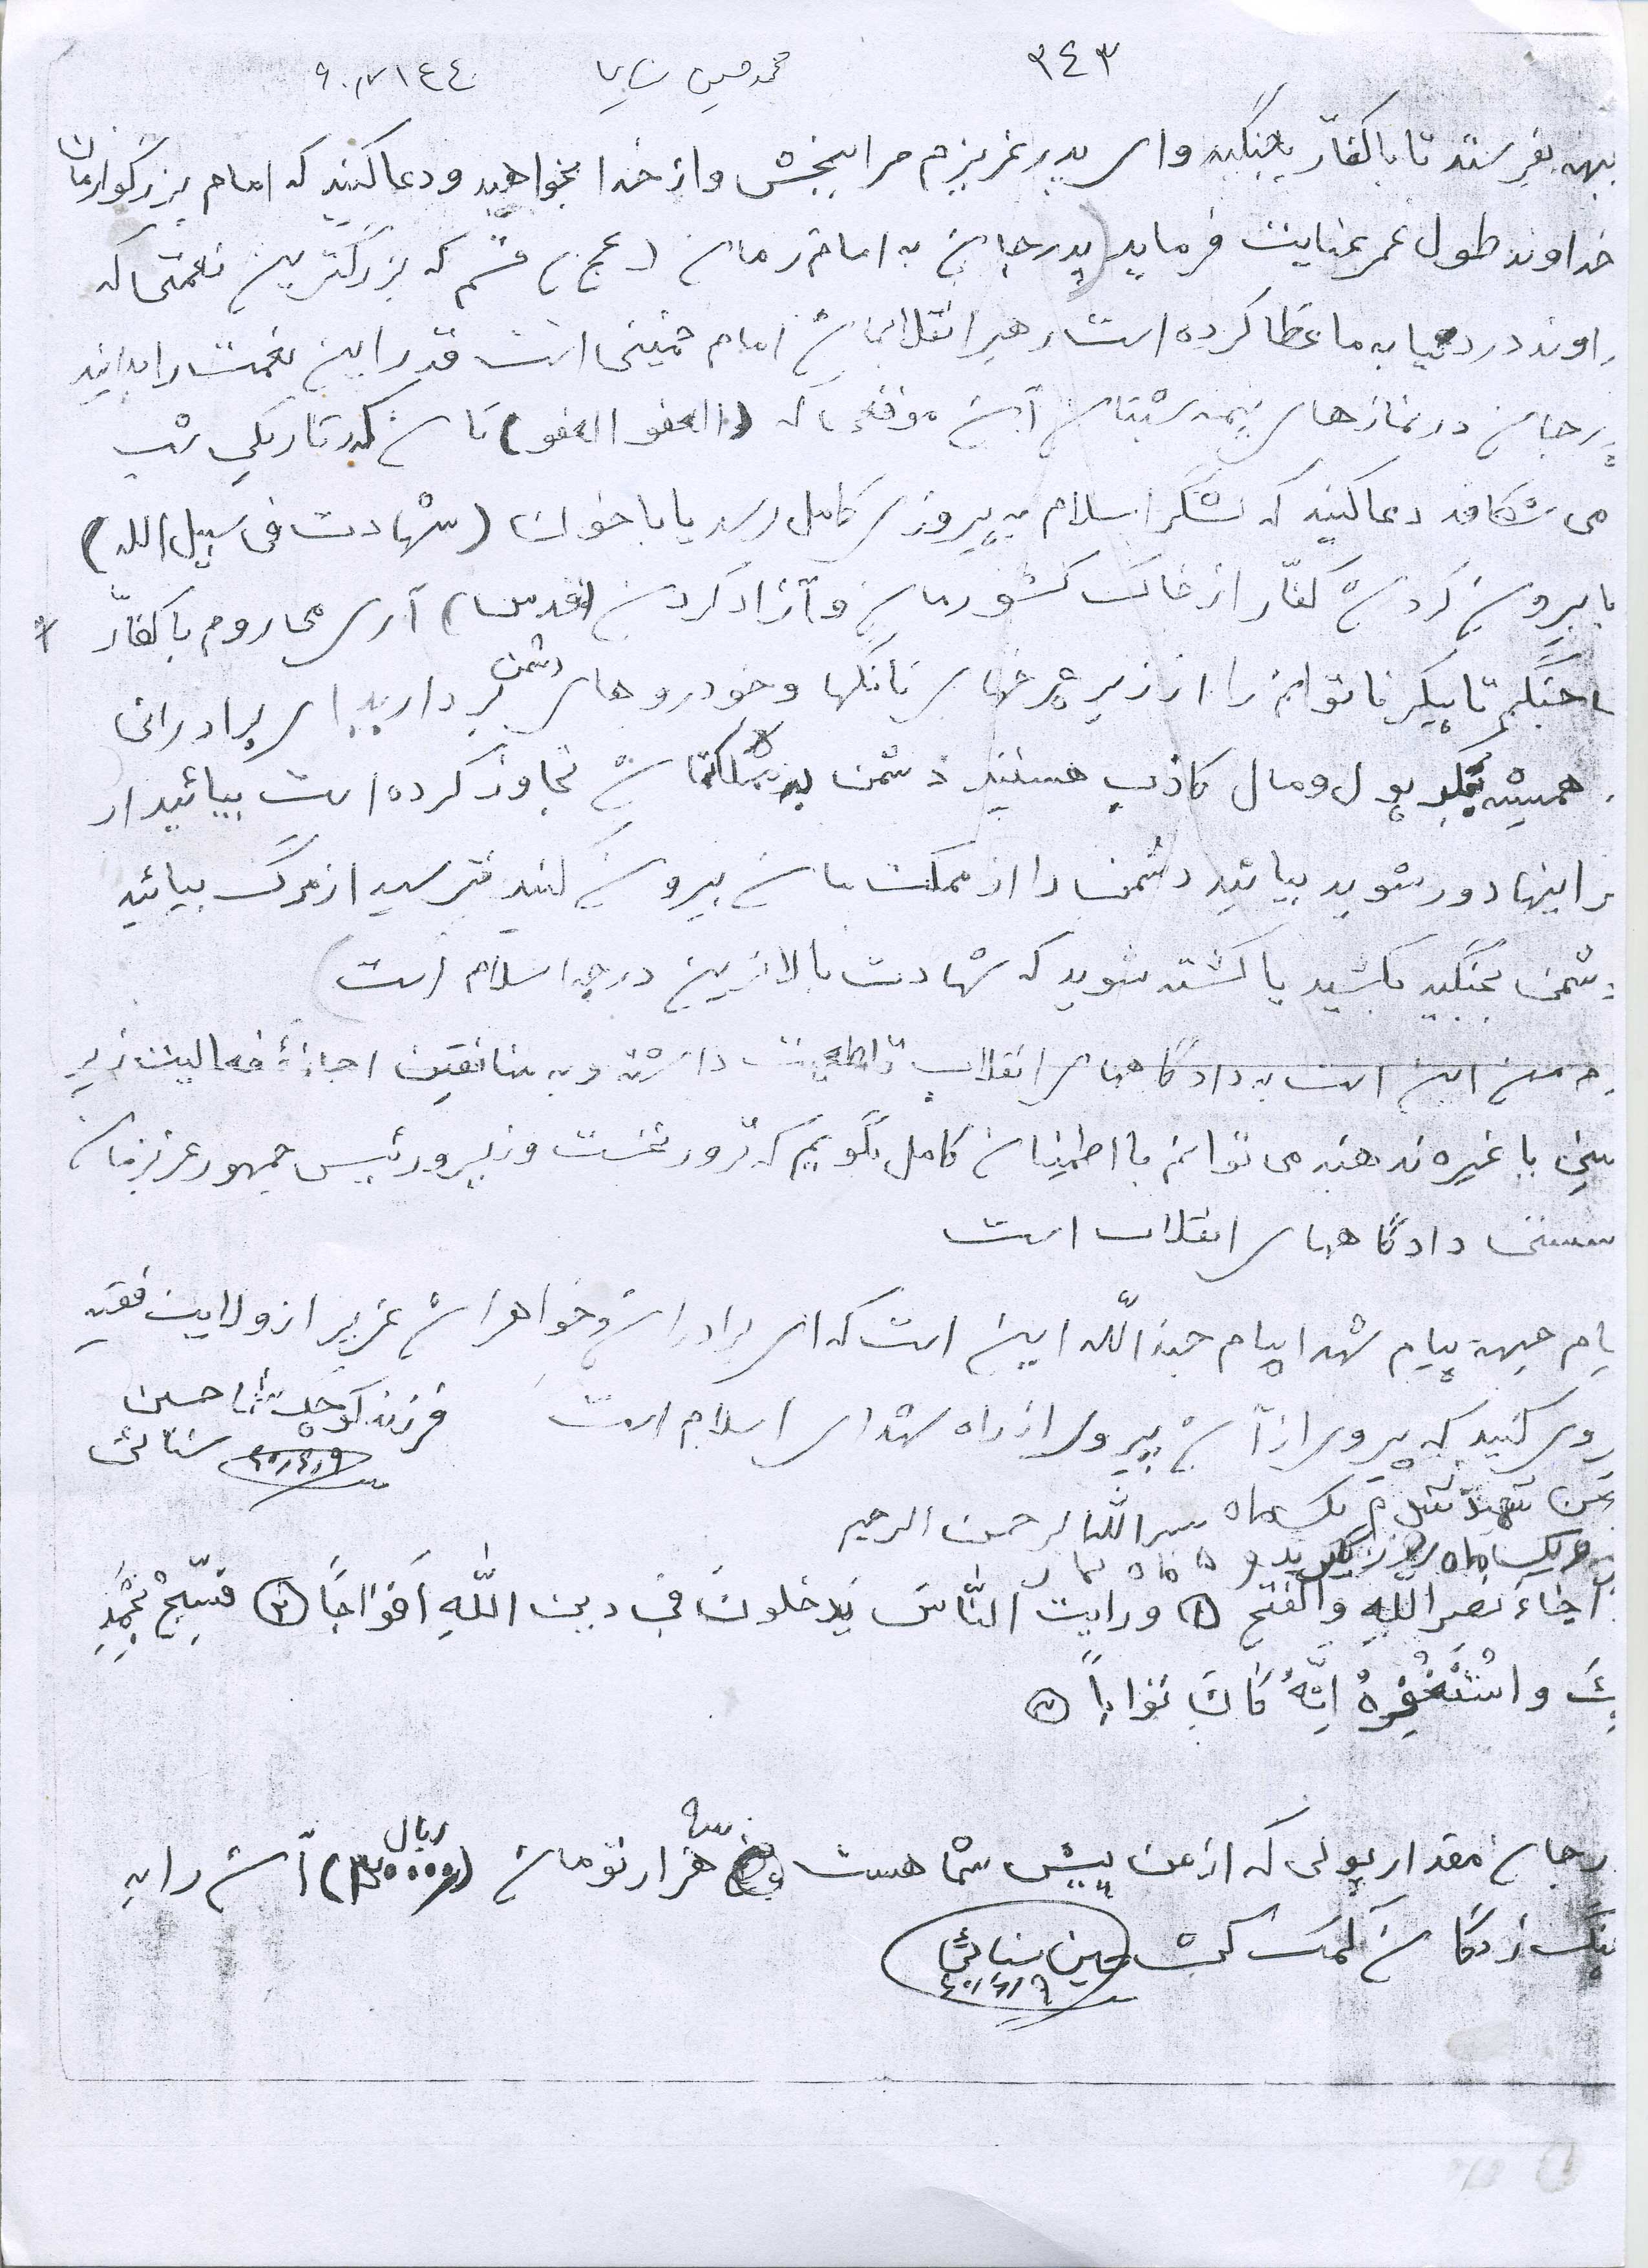 ٣٤٣
محمد حسین
بهه بفرستد تا با کفّار بجنگید و ای پدر عزیزم مرا ببخش و از خدا بخواهید و دعا کنید که امام بزرگوارمان
خداوند طول عمر عنایت فرماید (پدرجان به امام زمان (عج) قسم که بزرگترین نعمتی که
اوند در دنیا به ما عطا کرده است رهبر انقلابمان امام خمینی است قدر این نعمت را بدانید
رجان در نمازهای نیمه شبتان آن موقعی که (العفو العفو) تان که در تاریکی شب
می شکافد دعا کنید که لشگر اسلام به پیروزی کامل رسد یا با خون (شهادت فی سبیل الله)
با بیرون کردن کفّار از خاک کشورمان و آزاد کردن (قدس) آری می روم با کفّار
جنگم تا پیکر ناتوانم را از زیر چرخهای تانکها و خودروهای دشمن بردارید ای برادرانی
همیشه بفکر پول و مال کاذب هستید دشمن به مملکتمان تجاوز کرده است بیائید از
ر اینها دور شوید بیائید دشمن را از مملکت مان بیرون کنید نترسید از مرگ بیائید
شمن بجنگید بکشید یا کشته شوید که شهادت بالاترین درجه اسلام است)
من این است به دادگاههای انقلاب قاطعیت داشته و به منافقین اجازهٔ فعالیت زیر
ینی یا غیره ندهند می توانم با اطمینان کامل بگویم که ترور نخست وزیر و رئیس جمهور عزیزمان
سستی دادگاههای انقلاب است
یام جبهه پیام شهدا پیام جندالله این است که ای برادران و خواهران عزیز از ولایت فقیه
روی کنید که پیروی از آن پیروی از راه شهدای اسلام است
فرزند کوچک شما حسین
سنائی
من شهید شدم یک ماه
بسم الله الرحمن الرحیم
و یک ماه روزه بگیرید و ۵ ماه نماز
اجاءَ نصر اللهِ والفتح ① ورایت النّاسَ یَدخلونَ فی دین اللهِ اَفواجاً ② فسبّح بِحَمدِ
بِّکَ و اسْتَغْفِرهُ اِنَّهُ کانَ توّاباً ③
رجان مقدار پولی که از من پیش شما هست سه هزار تومان (۳۰۰۰۰ ریال) آن را به
نگ زدگان کمک کن
حسین سنائی
۶۰/۶/۹